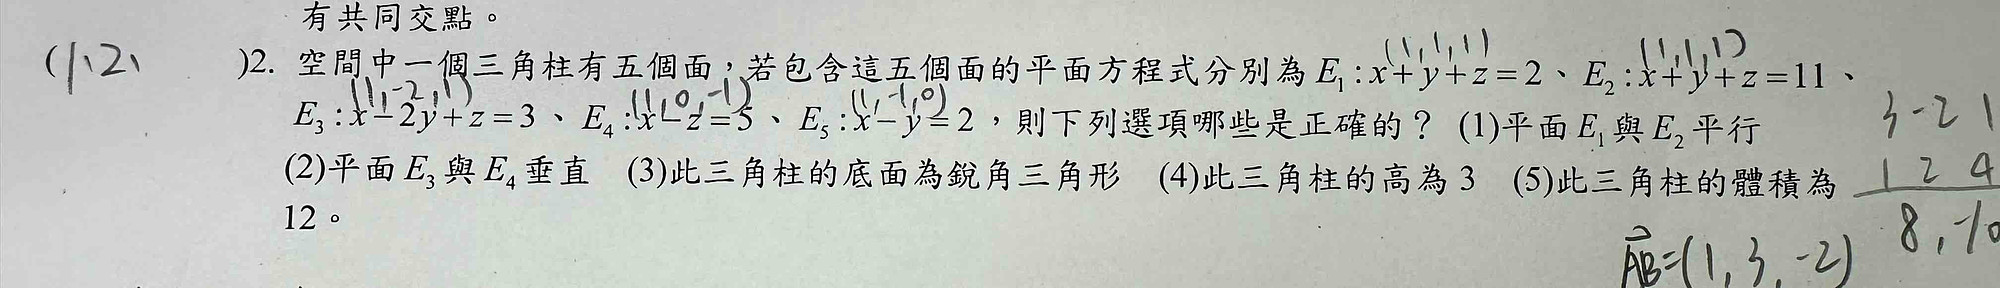 有共同交點。
(1,2, )2. 空間中一個三角柱有五個面，若包含這五個面的平面方程式分別為 E₁:x+y+z=2、E₂:x+y+z=11、
(1,1,1) (1,1,1)
E₃:x-2y+z=3、E₄:x-z=5、E₅:x-y=2，則下列選項哪些是正確的？ (1)平面 E₁ 與 E₂ 平行
(1,-2,1) (1,0,-1) (1,-1,0)
(2)平面 E₃ 與 E₄ 垂直 (3)此三角柱的底面為銳角三角形 (4)此三角柱的高為 3 (5)此三角柱的體積為
12。
3 -2 1
1 2 4
8, -10
AB=(1,3,-2)